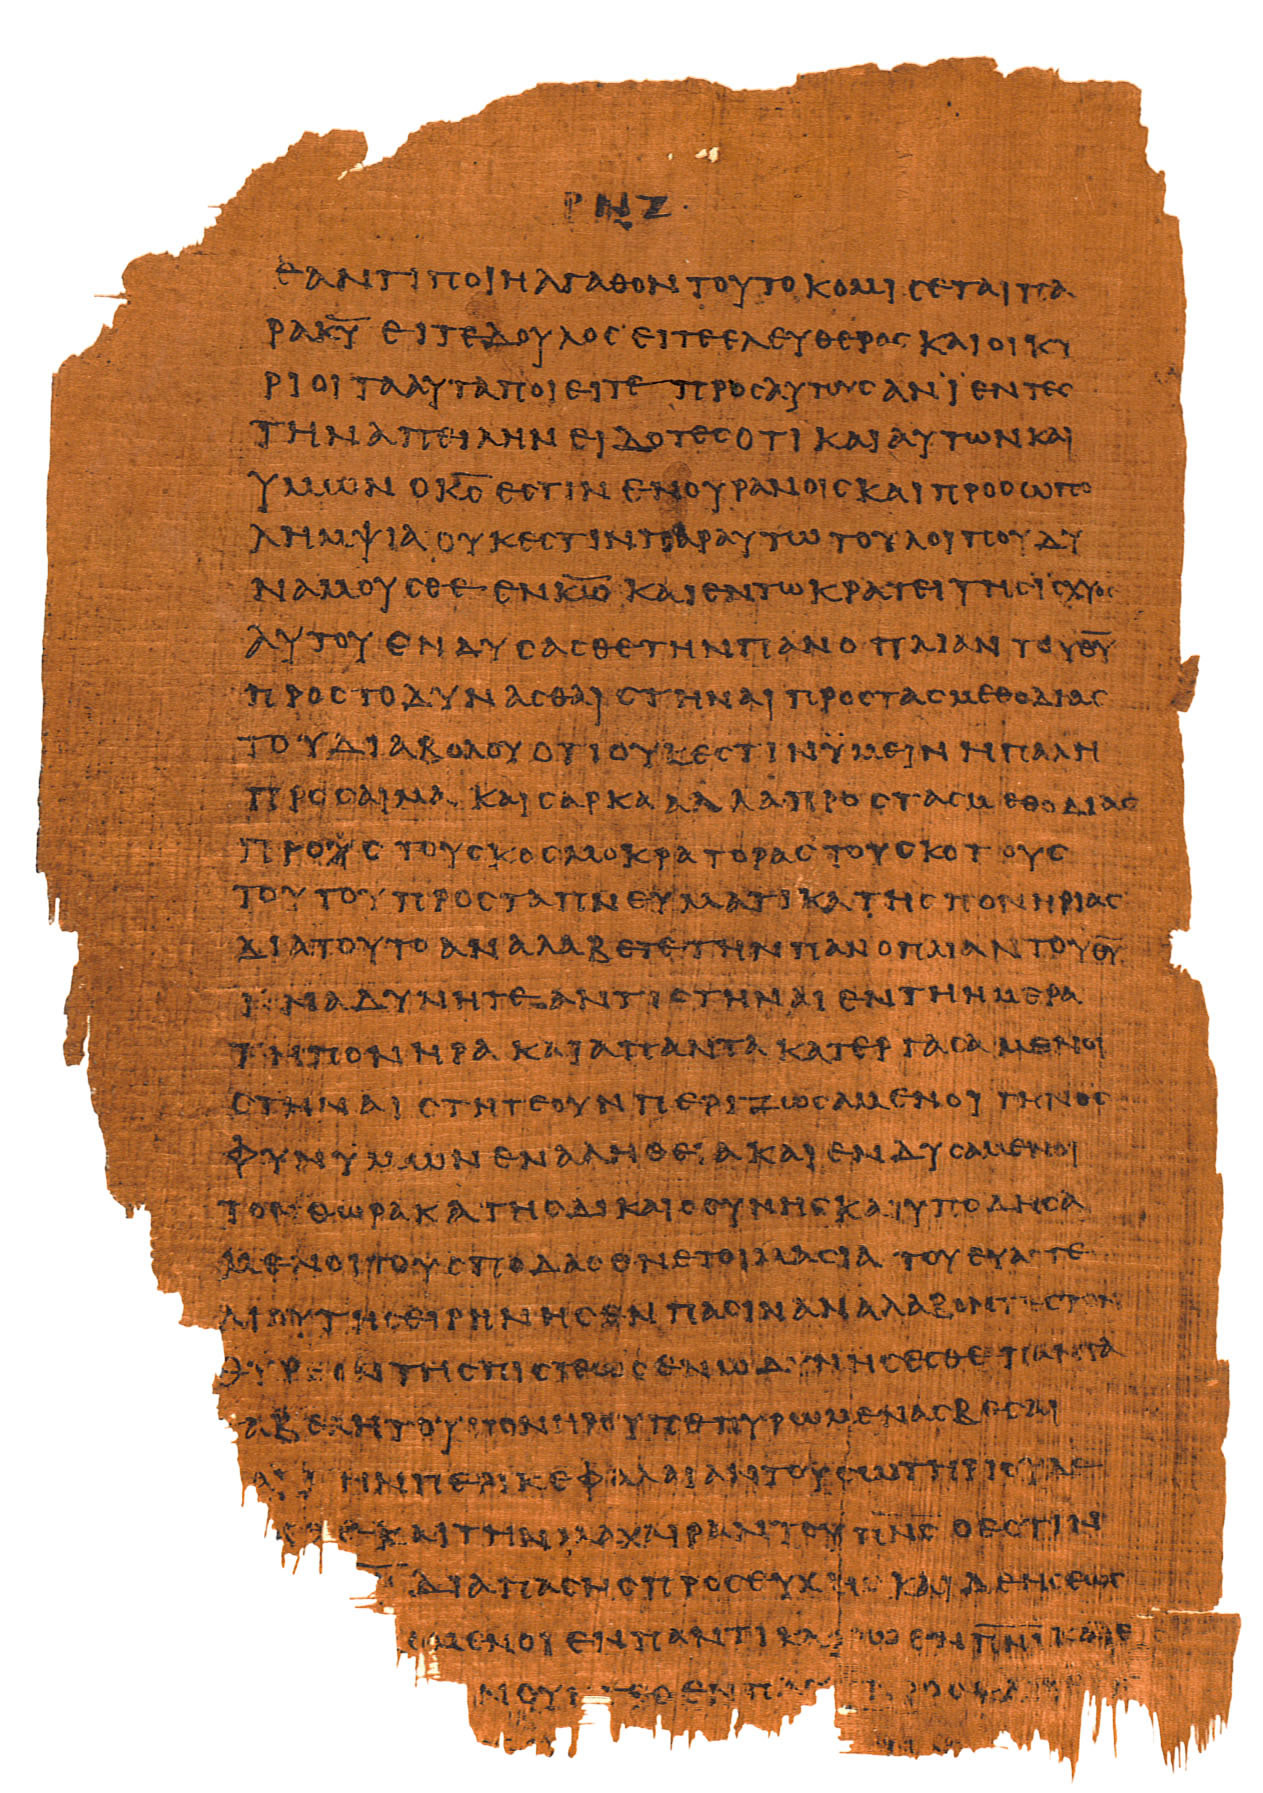 ΡΝΖ
ΕΑΝΤΙΠΟΙΗΑΓΑΘΟΝΤΟΥΤΟΚΟΜΙΣΕΤΑΙΠΑ
ΡΑΚ̅Υ̅ ΕΙΤΕΔΟΥΛΟΣ ΕΙΤΕΕΛΕΥΘΕΡΟΣ ΚΑΙΟΙΚΥ
ΡΙΟΙΤΑΑΥΤΑΠΟΙΕΙΤΕ ΠΡΟΣΑΥΤΟΥΣΑΝΪΕΝΤΕΣ
ΤΗΝΑΠΕΙΛΗΝΕΙΔΟΤΕΣΟΤΙ ΚΑΙΑΥΤΩΝΚΑΙ
ΥΜΩΝ ΟΚ̅Σ̅ ΕΣΤΙΝ ΕΝΟΥΡΑΝΟΙΣΚΑΙΠΡΟΣΩΠΟ
ΛΗΜΨΙΑ ΟΥΚΕΣΤΙΝΠΑΡΑΥΤΩ ΤΟΥΛΟΙΠΟΥΔΥ
ΝΑΜΟΥΣΘΕ ΕΝΚ̅Ω̅ ΚΑΙΕΝΤΩΚΡΑΤΕΙΤΗΣΙΣΧΥΟΣ
ΑΥΤΟΥ ΕΝΔΥΣΑΣΘΕΤΗΝΠΑΝΟΠΛΙΑΝ ΤΟΥΘ̅Υ̅
ΠΡΟΣΤΟΔΥΝΑΣΘΑΙ ΣΤΗΝΑΙ ΠΡΟΣΤΑΣΜΕΘΟΔΙΑΣ
ΤΟΥΔΙΑΒΟΛΟΥ ΟΤΙΟΥΚΕΣΤΙΝΫΜΕΙΝ ΗΠΑΛΗ
ΠΡΟΣΑΙΜΑ ΚΑΙΣΑΡΚΑ ΑΛΛΑΠΡΟΣΤΑΣΜΕΘΟΔΙΑΣ
ΠΡΟΣ ΤΟΥΣΚΟΣΜΟΚΡΑΤΟΡΑΣΤΟΥΣΚΟΤΟΥΣ
ΤΟΥΤΟΥΠΡΟΣΤΑΠΝΕΥΜΑΤΙΚΑΤΗΣΠΟΝΗΡΙΑΣ
ΔΙΑΤΟΥΤΟΑΝΑΛΑΒΕΤΕΤΗΝΠΑΝΟΠΛΙΑΝΤΟΥΘ̅Υ̅
ΙΝΑΔΥΝΗΤΕ ΑΝΤΙΣΤΗΝΑΙ ΕΝΤΗΗΜΕΡΑ
ΤΗΠΟΝΗΡΑ ΚΑΙΑΠΑΝΤΑ ΚΑΤΕΡΓΑΣΑΜΕΝΟΙ
ΣΤΗΝΑΙ ΣΤΗΤΕΟΥΝΠΕΡΙΖΩΣΑΜΕΝΟΙ ΤΗΝΟΣ
ΦΥΝΥΜΩΝΕΝΑΛΗΘΕΙΑΚΑΙΕΝΔΥΣΑΜΕΝΟΙ
ΤΟΝΘΩΡΑΚΑΤΗΣΔΙΚΑΙΟΣΥΝΗΣΚΑΙΥΠΟΔΗΣΑ
ΜΕΝΟΙΤΟΥΣΠΟΔΑΣΕΝΕΤΟΙΜΑΣΙΑ ΤΟΥΕΥΑΓΓΕ
ΛΙΟΥΤΗΣΕΙΡΗΝΗΣΕΝΠΑΣΙΝΑΝΑΛΑΒΟΝΤΕΣΤΟΝ
ΘΥΡΕΟΝΤΗΣΠΙΣΤΕΩΣΕΝΩΔΥΝΗΣΕΣΘΕΤΑΠΑΝΤΑ
ΤΑΒΕΛΗΤΟΥΠΟΝΗΡΟΥΠΕΠΥΡΩΜΕΝΑΣΒΕΣΑΙ
ΗΝΠΕΡΙΚΕΦΑΛΑΙΑΝΤΟΥΣΩΤΗΡΙΟΥΔΕ
ΚΑΙΤΗΝΜΑΧΑΙΡΑΝΤΟΥΠ̅Ν̅Σ̅ ΟΕΣΤΙΝ
ΔΙΑΠΑΣΗΣΠΡΟΣΕΥΧΗΣ ΚΑΙΔΕΗΣΕΩΣ
ΟΜΕΝΟΙΕΝΠΑΝΤΙΚΑΙΡΩΕΝΠ̅Ν̅Ι̅ΚΑΙΕ